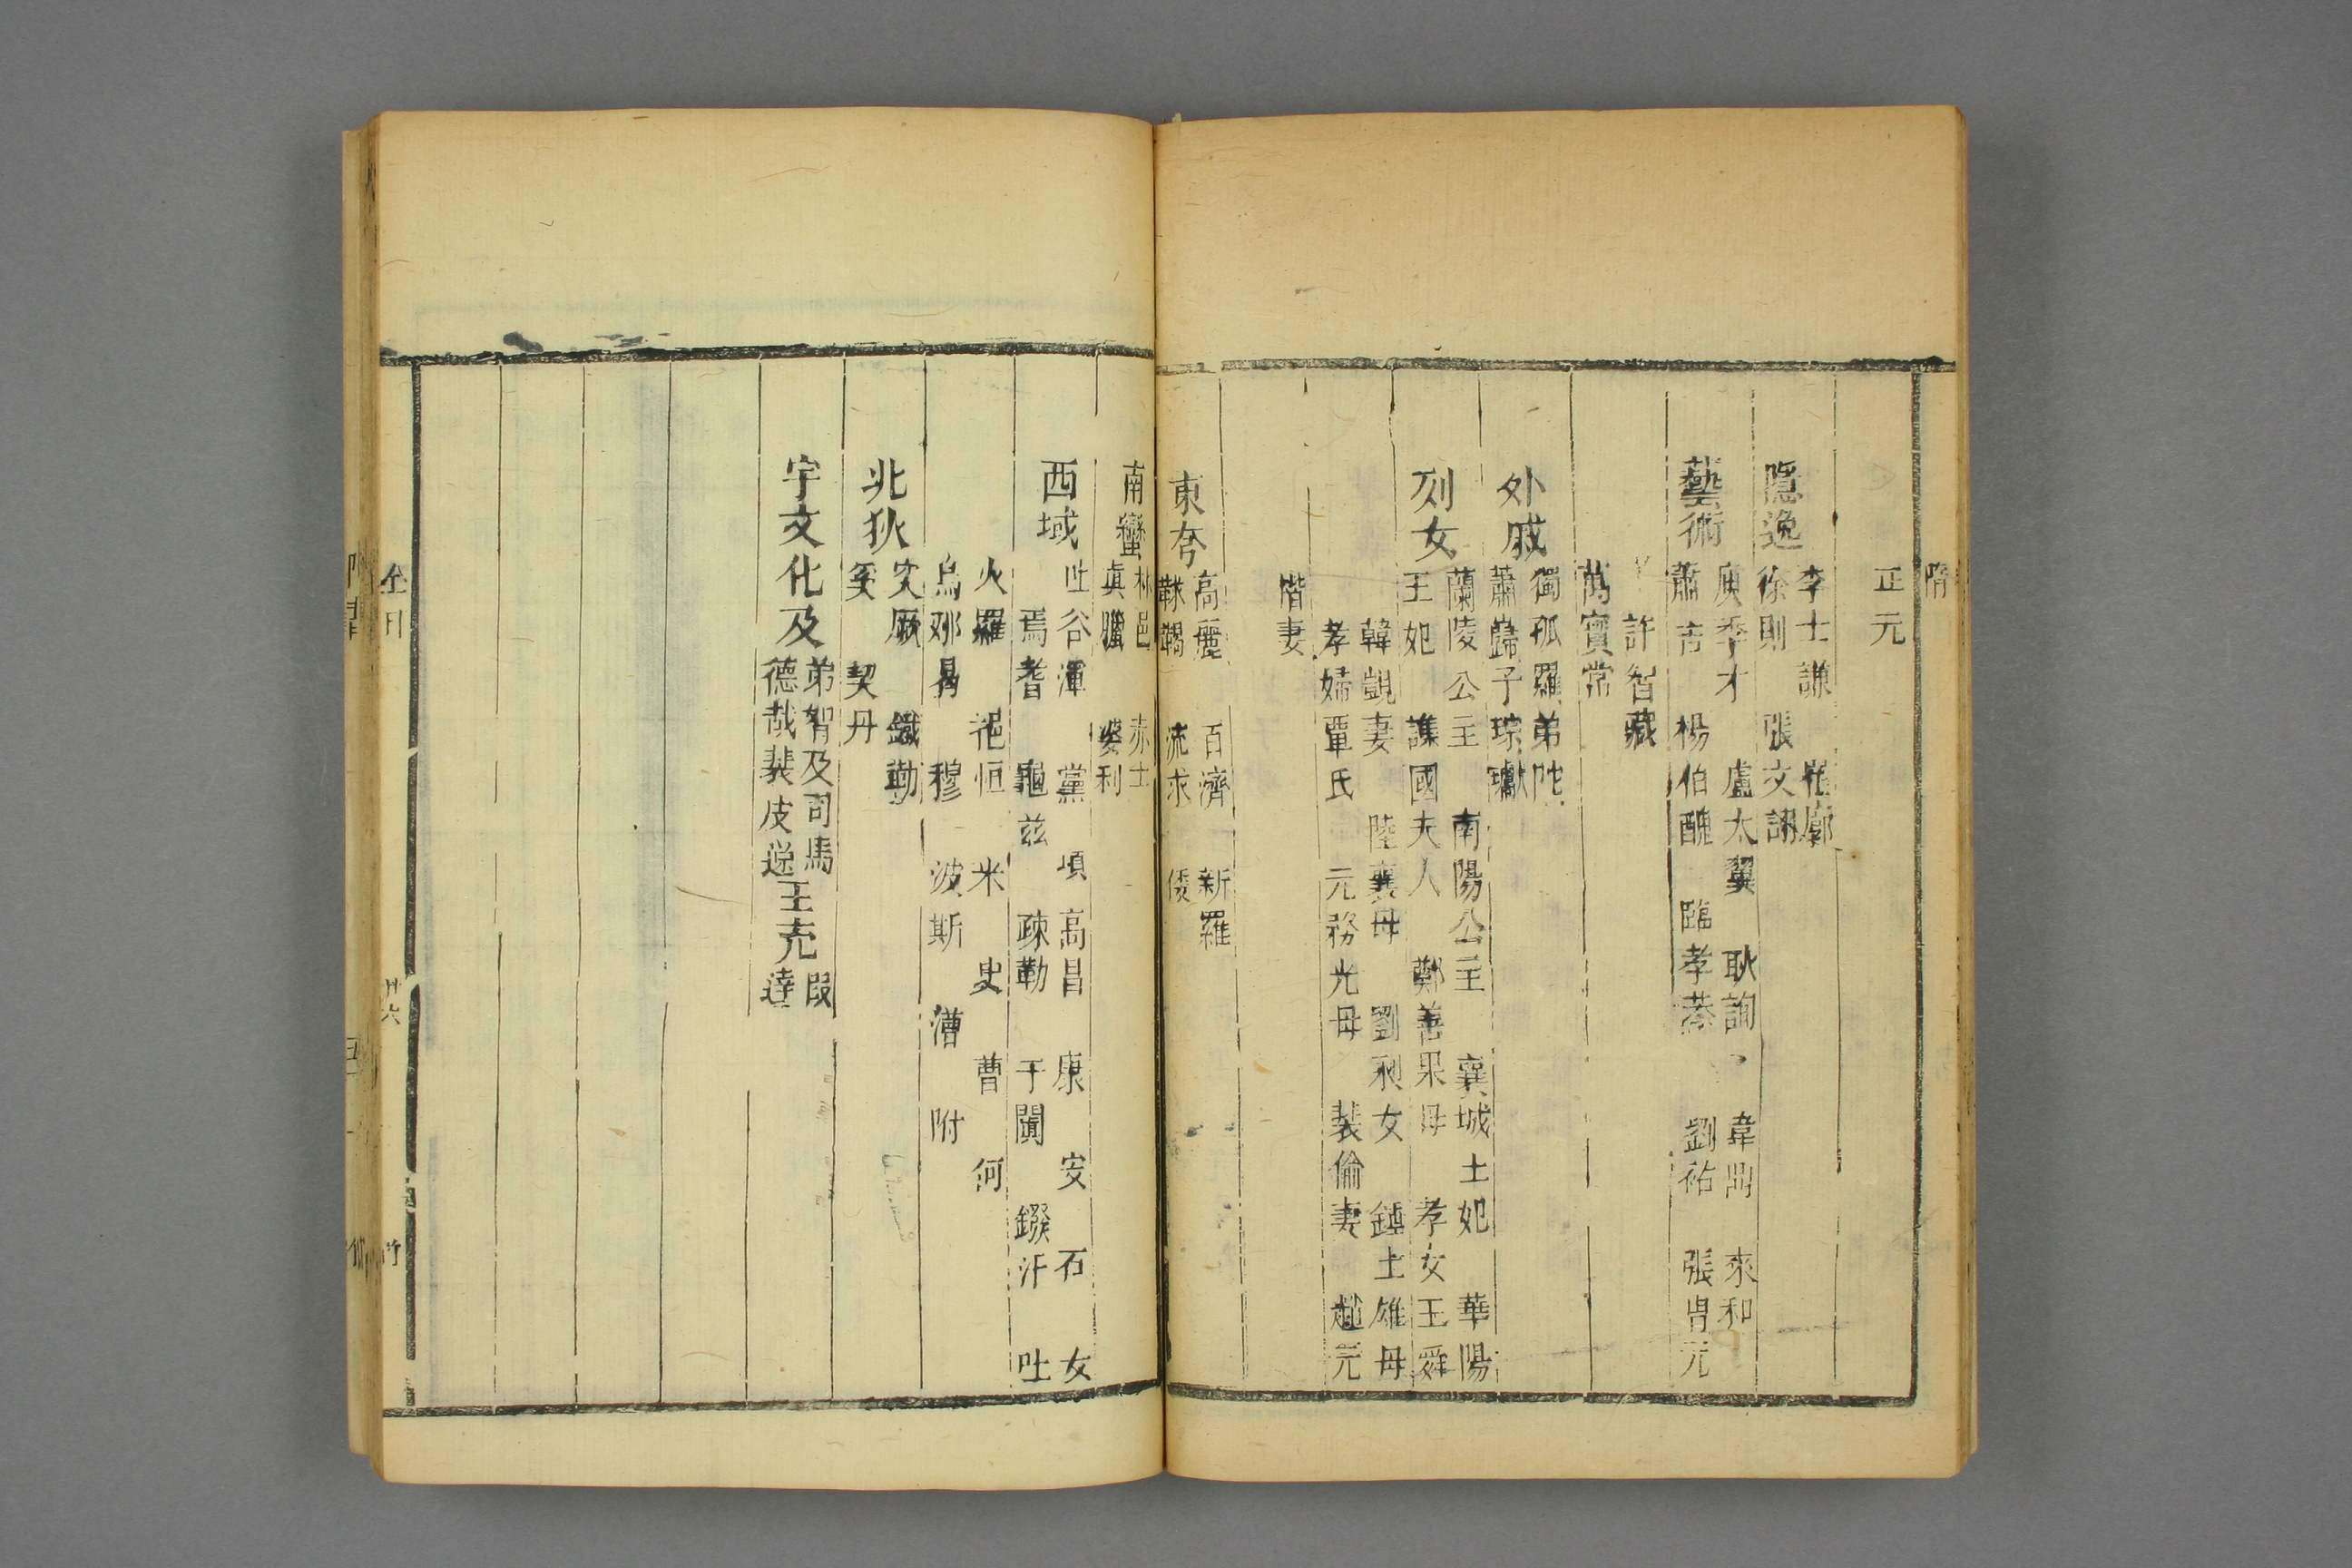 隋
正元
隱逸 李士謙 崔廓
徐則 張文詡
藝術 庾季才 盧太翼 耿詢 韋鼎 來和
蕭吉 楊伯醜 臨孝恭 劉祐 張胄元
許智藏
萬寶常
外戚 獨孤羅弟陀
蕭巋子琮瓛
列女 蘭陵公主 南陽公主 襄城王妃 華陽
王妃 譙國夫人 鄭善果母 孝女王舜
韓覬妻 陸襄母 劉昶女 鍾士雄母
孝婦覃氏 元務光母 裴倫妻 趙元
楷妻
東夸 高麗 百濟 新羅
靺鞨 流求 倭
南蠻 林邑 赤土
真臘 婆利
西域 吐谷渾 黨項 高昌 康 安 石 女
焉耆 龜茲 疎勒 于闐 鏺汗 吐
火羅 挹怛 米 史 曹 何
烏那曷 穆 波斯 漕 附
北狄 突厥 鐵勒
奚 契丹
宇文化及 弟智及司馬
德戡裴虔通 王充 段
達